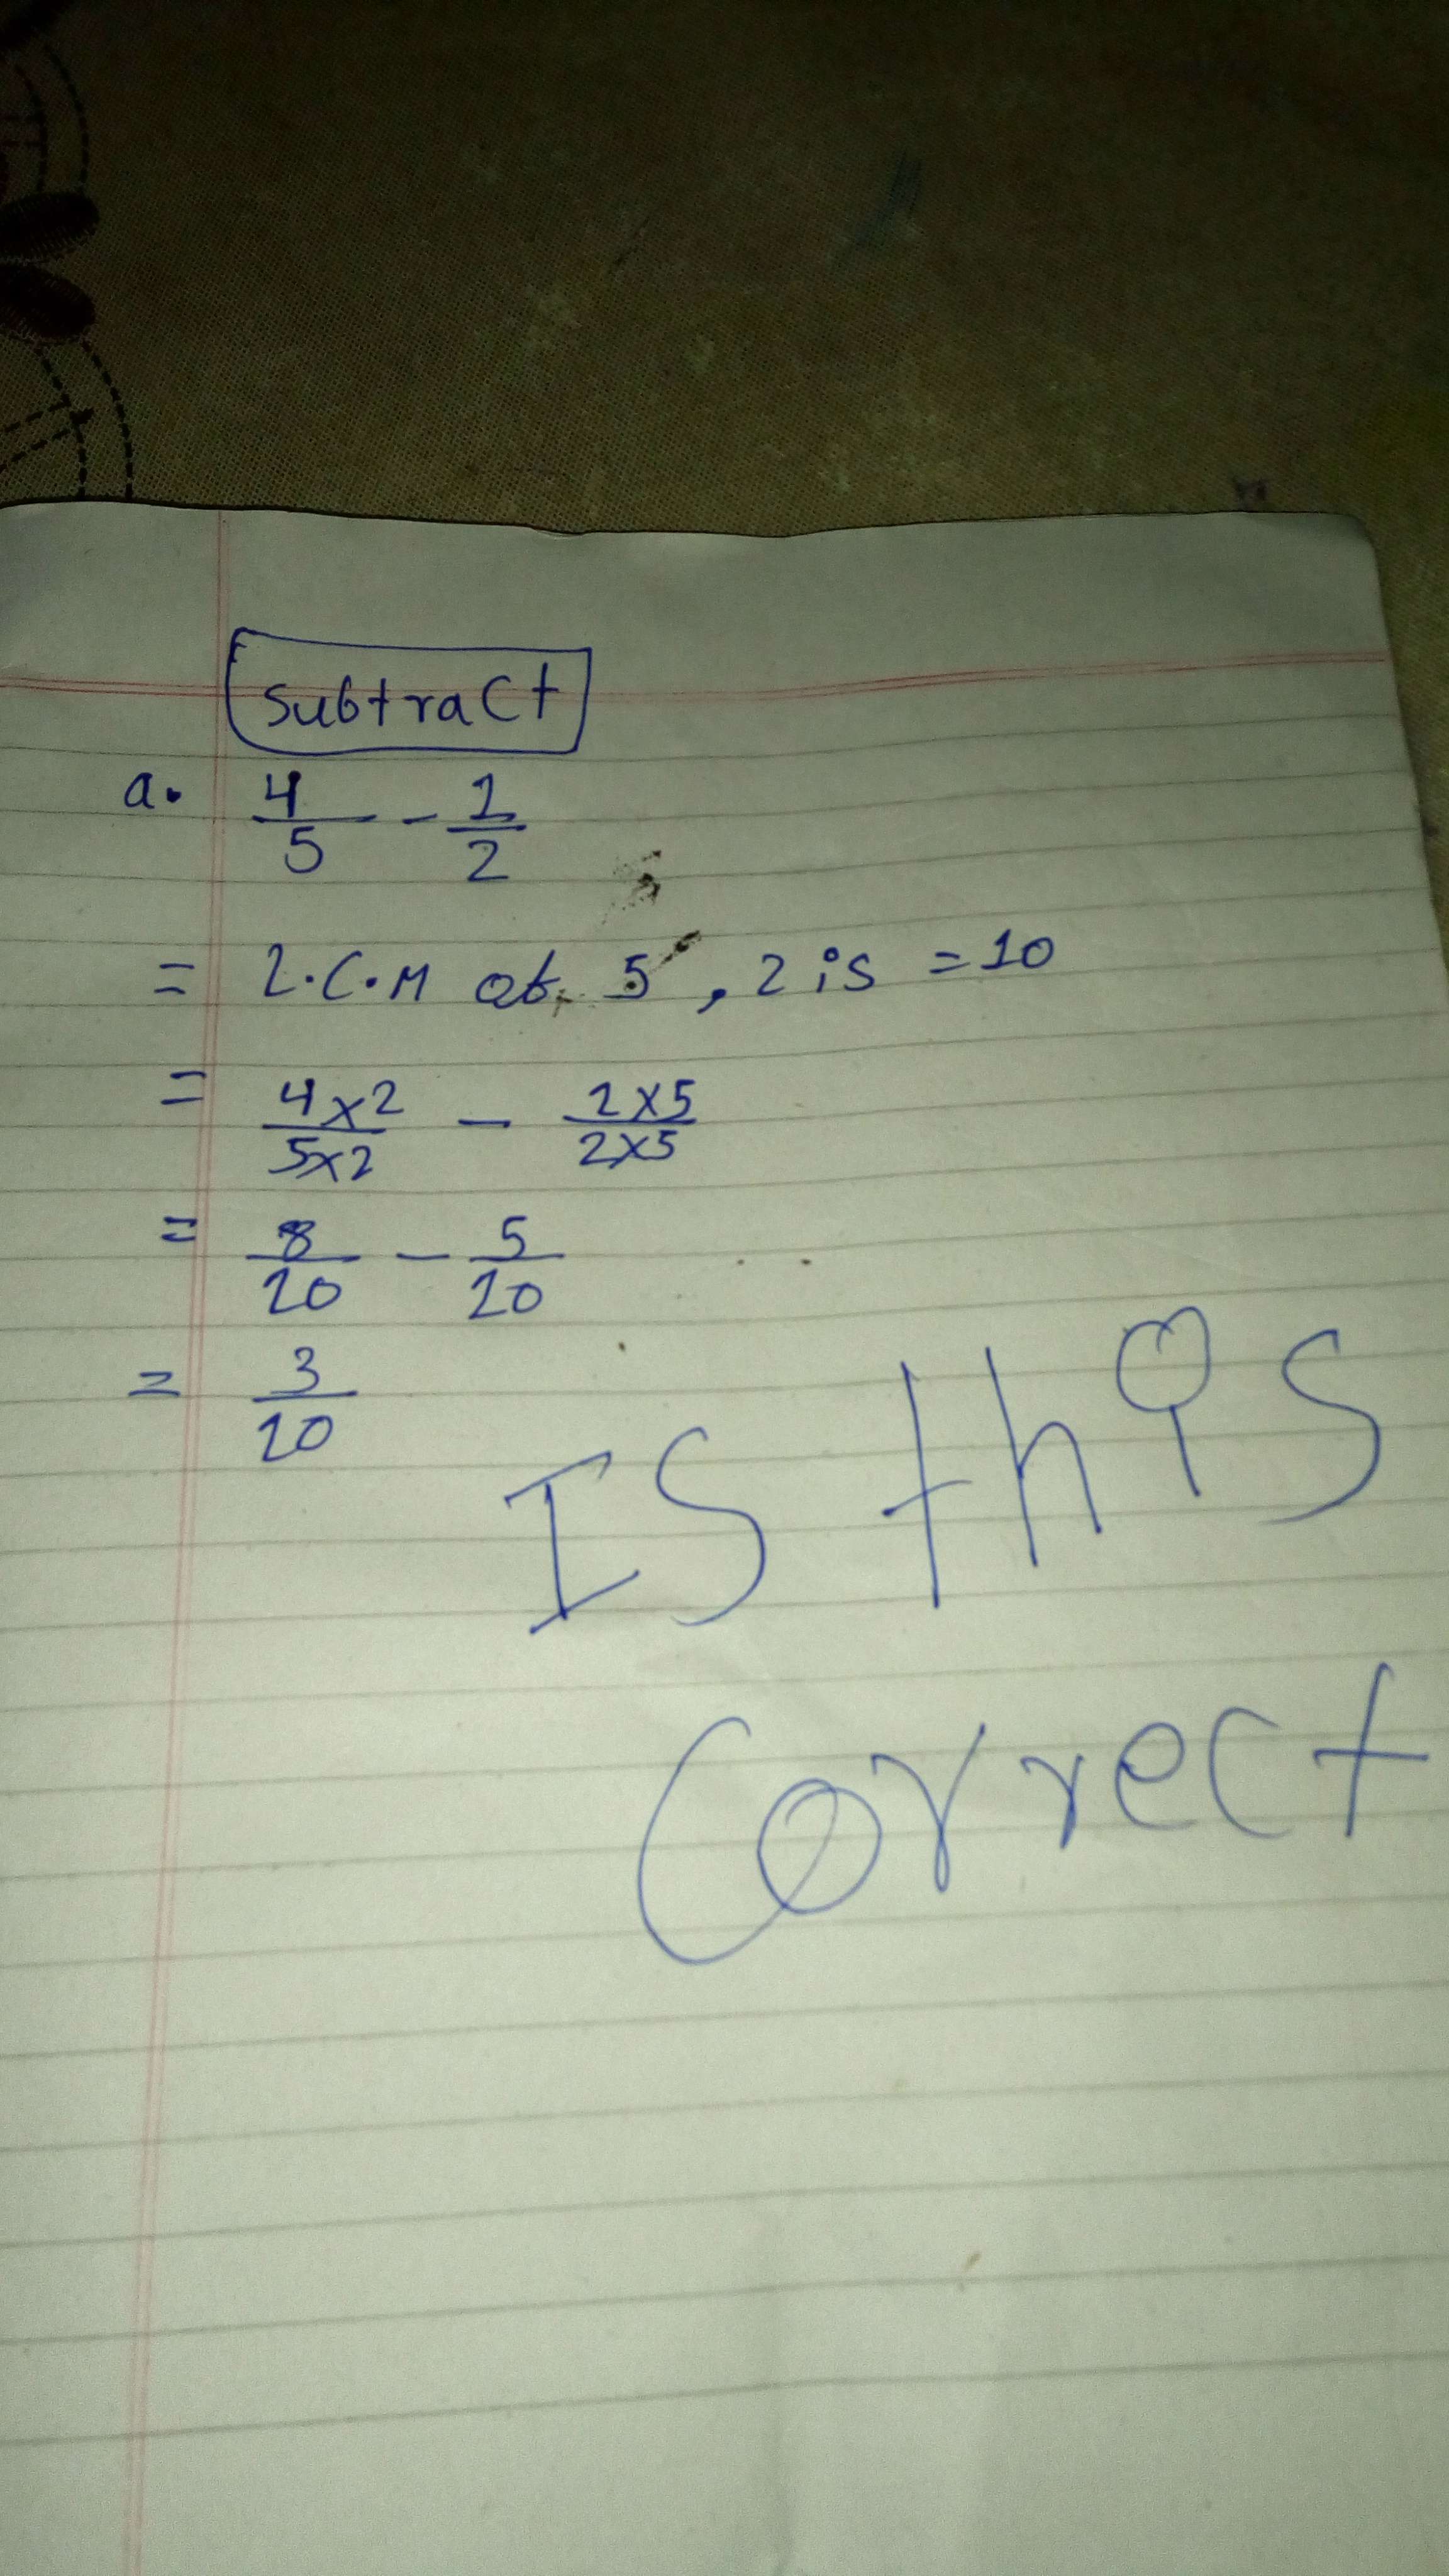 subtract
a. 4/5 - 1/2
= L.C.M of 5, 2 is = 10
= 4x2/5x2 - 1x5/2x5
= 8/10 - 5/10
= 3/10
Is this
Correct